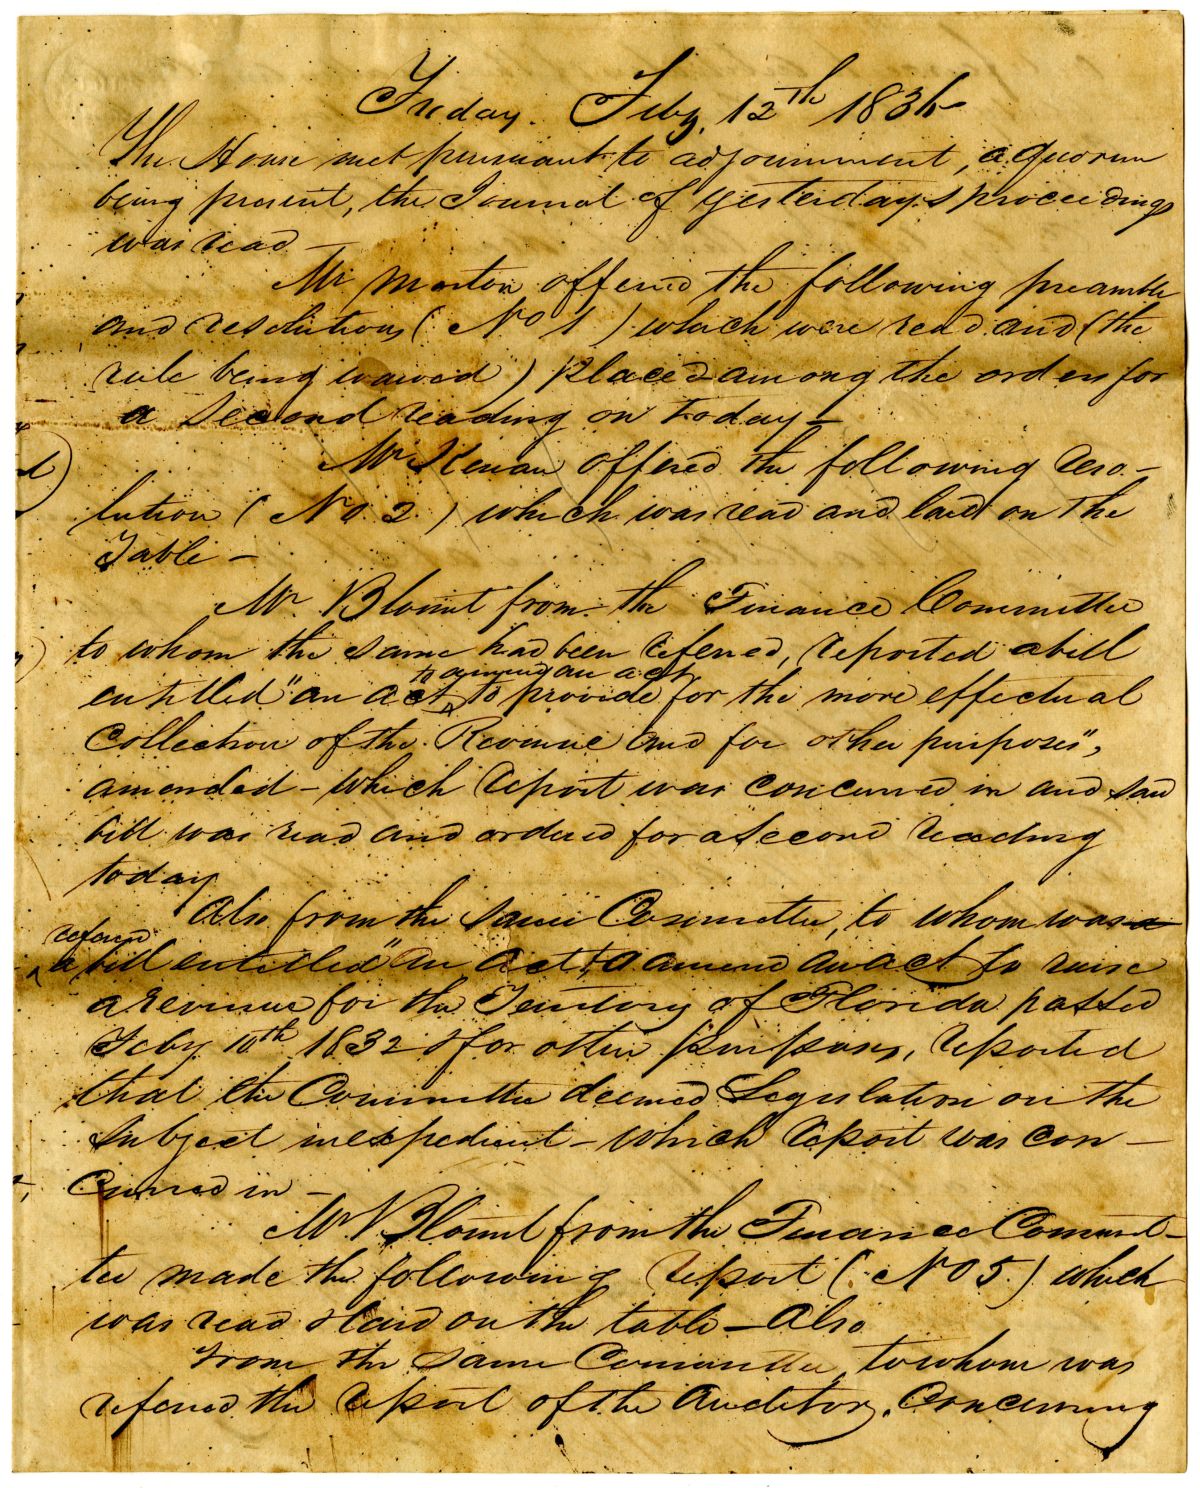 Friday. Feby. 12th 1836
The House met pursuant to adjournment, a quorum
being present, the Journal of yesterdays proceedings
was read —
Mr Morton offered the following preamble
and resolutions (No 1) which were read and (the
rule being waived) placed among the orders for
a second reading on today —
Mr Kenan offered the following Reso-
lution (No 2.) which was read and laid on the
Table —
Mr Blount from the Finance Committee
to whom the same had been refered, reported a bill
to amend an act
entitled "an act to provide for the more effectual
Collection of the Revenue and for other purposes",
amended — which report was concurred in and said
bill was read and ordered for a second reading
today
Also from the same Committee, to whom was a
refered
a bill entitled "an act to amend an act to raise
a revenue for the Territory of Florida passed
Feby 10th 1832 & for other purposes, reported
that the Committee deemed Legislation on the
subject inexpedient — which report was con-
curred in —
Mr Blount from the Finance Commit-
tee made the following report (No 5.) which
was read & laid on the table — Also
from the same Committee, to whom was
refered the report of the Auditor, Concerning